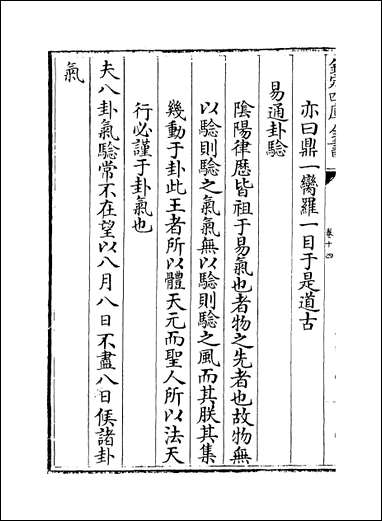 欽定四庫全書
卷十四
亦曰鼎一臠羅一目于是道古
易通卦驗
隂陽律歴皆祖于易氣也者物之先者也故物無
以驗則驗之氣氣無以驗則驗之風而其朕其集
幾動于卦此王者所以體天元而聖人所以法天
行必謹于卦氣也
夫八卦氣驗常不在望以八月八日不盡八日候諸卦
氣